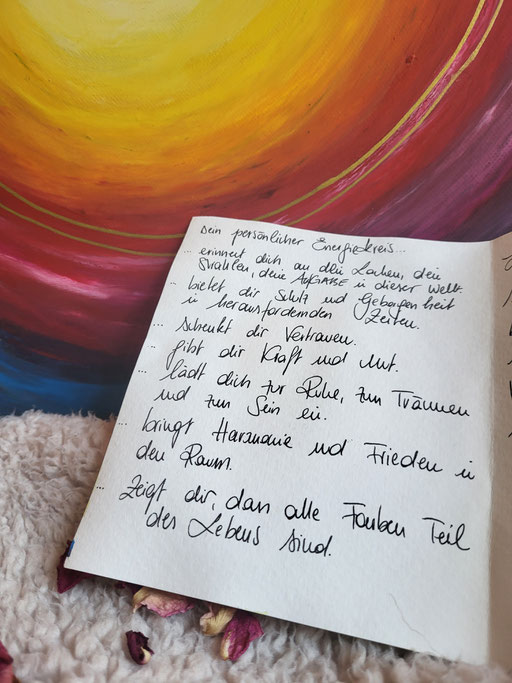 Dein persönlicher Energiekreis...
... erinnert dich an dein Lachen, dein
Strahlen, deine AUFGABE in dieser Welt.
... bietet dir Schutz und Geborgenheit
in herausfordernden Zeiten.
... schenkt dir Vertrauen.
... gibt dir Kraft und Mut.
... lädt dich zur Ruhe, zum Träumen
und zum Sein ein.
... bringt Harmonie und Frieden in
den Raum.
... zeigt dir, dass alle Farben Teil
des Lebens sind.